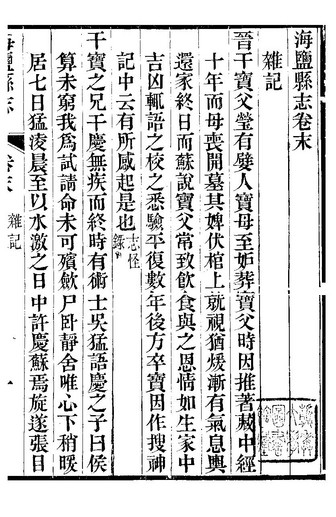 海鹽縣志卷末
雜記
晉干寶父瑩有嬖人寶母至妒葬寶父時因推著藏中經
十年而母喪開墓其婢伏棺上就視猶煖漸有氣息輿
還家終日而蘇說寶父常致飲食與之恩情如生家中
吉凶輒語之校之悉驗平復數年後方卒寶因作搜神
記中云有所感起是也志怪錄
干寶之兄干慶無疾而終時有術士吳猛語慶之子曰侯
算未窮我爲試請命未可殯歛尸卧靜舍唯心下稍暖
居七日猛凌晨至以水激之日中許慶蘇焉旋遂張目
海鹽縣志
卷末
雜記
一